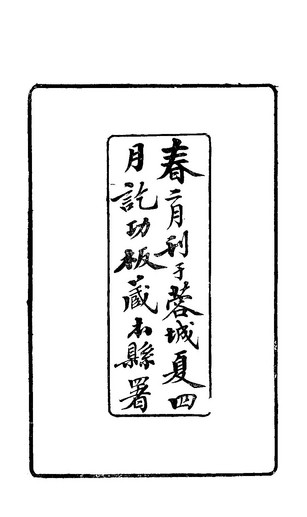 春二月刊于蓉城夏四
月訖功板藏本縣署